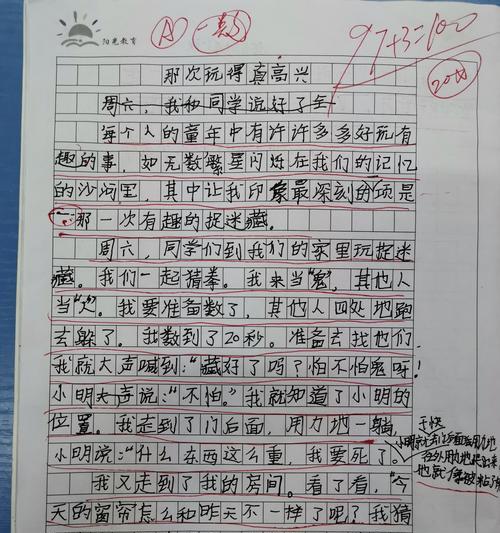 阳光教育
97+3=100
那次玩得真高兴
周六,我和同学说好了在
每个人的童年中有许许多多好玩有
趣的事,如无数繁星闪烁在我们的记忆
的沙河里,其中让我印象最深刻的一项是
那一次有趣的捉迷藏。
周六,同学们到我们的家里玩捉迷
藏。我们一起猜拳。我来当“鬼”,其他人
当“人”。我要准备数了,其他人四处地跑
去躲了。我数到了20秒。准备去找他们
我就大声喊到:“藏好了吗?怕不怕鬼呀!
小明大声说:“不怕。”我就知道了小明的
位置。我走到了门后面,用力地一躺,
小明说:“什么东西这么重,我要死了。
我又走到了我的房间。看了看,“今
天的窗帘怎么和昨天不一样了呢?我猜